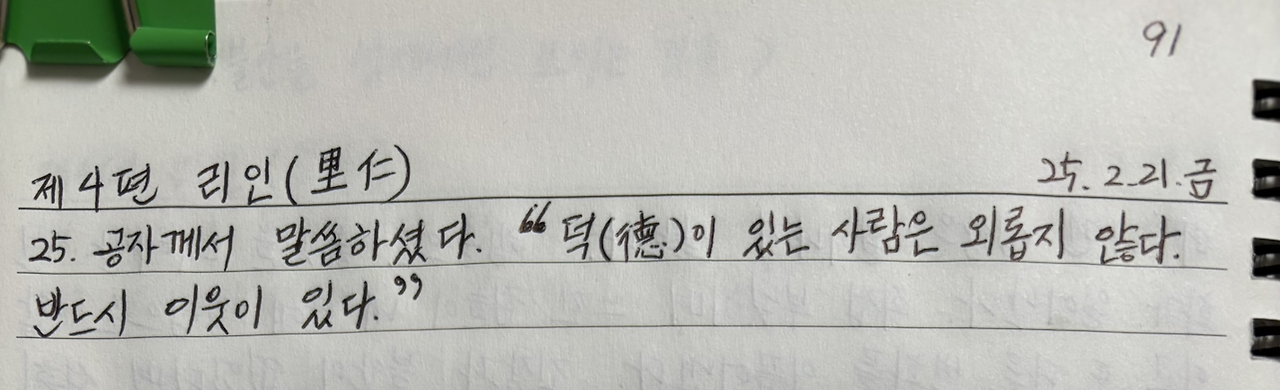 91
제4편 리인(里仁) 25. 2. 21. 금
25. 공자께서 말씀하셨다. “덕(德)이 있는 사람은 외롭지 않다.
반드시 이웃이 있다.”